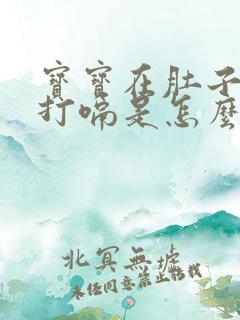 寶寶在肚子
打嗝是怎麼
北冥無墟
未經同意禁止轉載